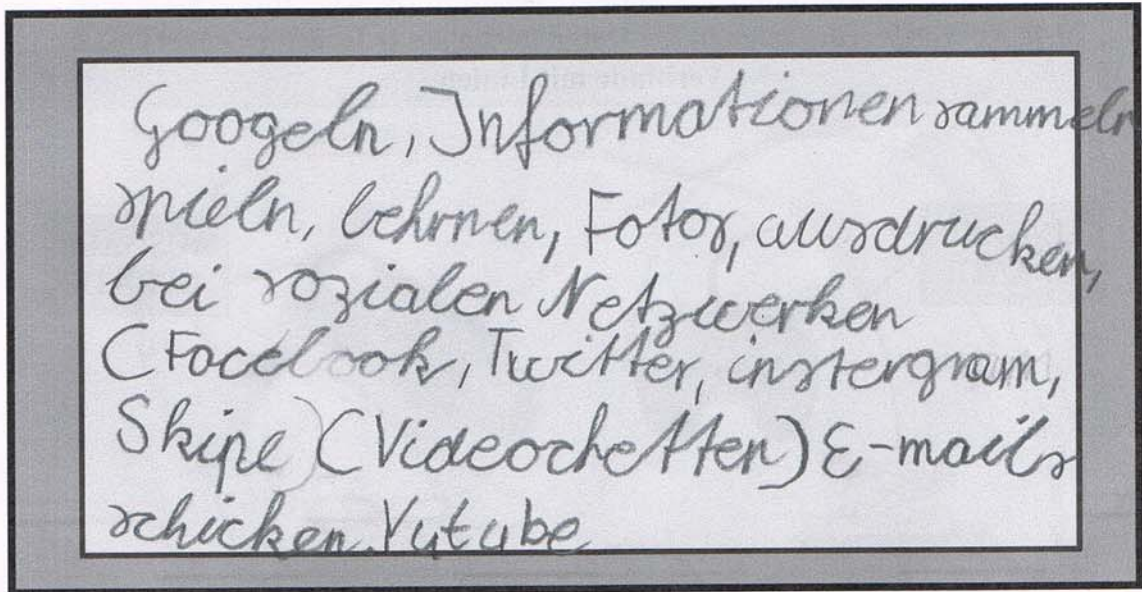 Googeln, Informationen sammeln
spieln, lehrnen, Fotos, ausdrucken,
bei sozialen Netzwerken
(Facebook, Twitter, instergram,
Skipe) (Videochetten) E-mails
schicken. Yutube